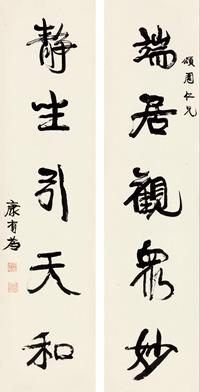 頌周仁兄
端居觀衆妙
靜坐引天和
康有為